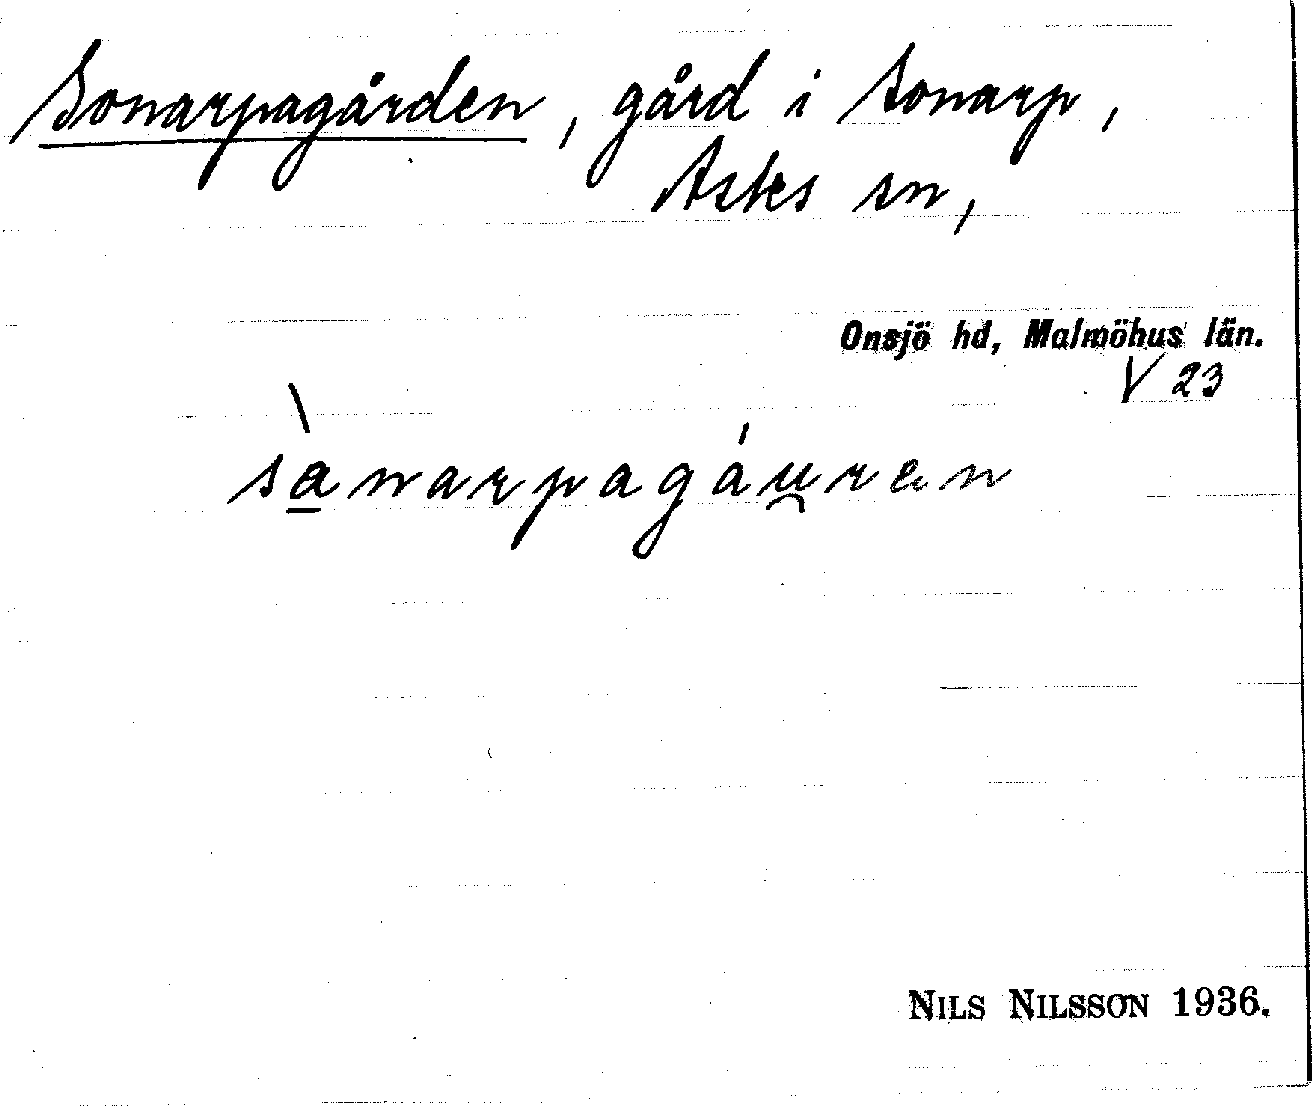 Sonarpagården, gård i Sonarp,
Asks sn,
Onsjö hd, Malmöhus län.
V 23
sànarpagáu̯ran
NILS NILSSON 1936.